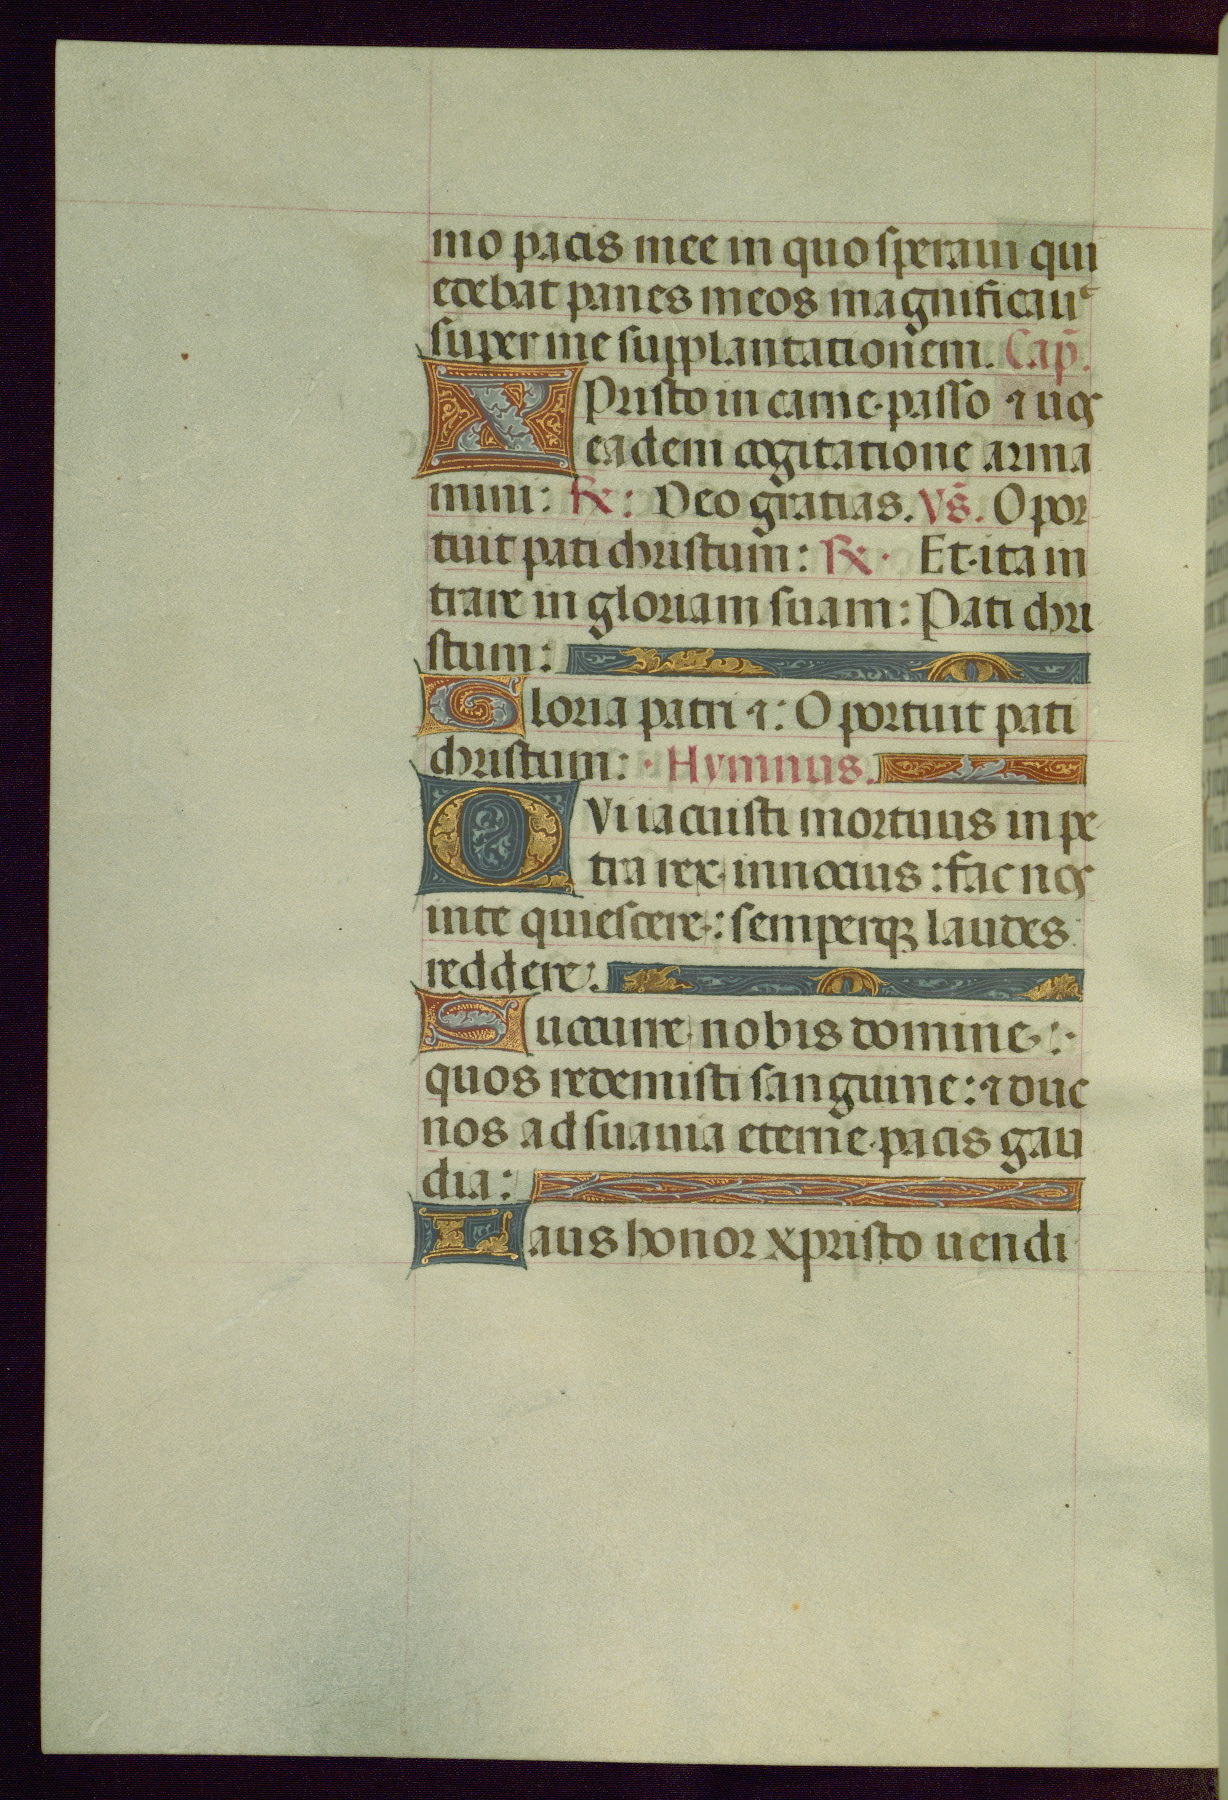 mo pacis mee in quo speraui qui
edebat panes meos magnificauᵗ
super me supplantationem. Cap̄.
XPristo in carne passo ⁊ uos
eadem cogitatione arma
mini: ℟: Deo gratias. Vs̄. Opor
tuit pati christum: ℟. Et ita in
trare in gloriam suam: Pati chri
stum:
Gloria patri ⁊: Oportuit pati
christum: Hymnus.
QVi iacuisti mortuus in pe
tra rex innocuus: fac nos
in te quiescere: semperqꝫ laudes
reddere:
Succurre nobis domine:
quos redemisti sanguine: ⁊ duc
nos ad suauia eterne pacis gau
dia:
Laus honor xpristo uendi